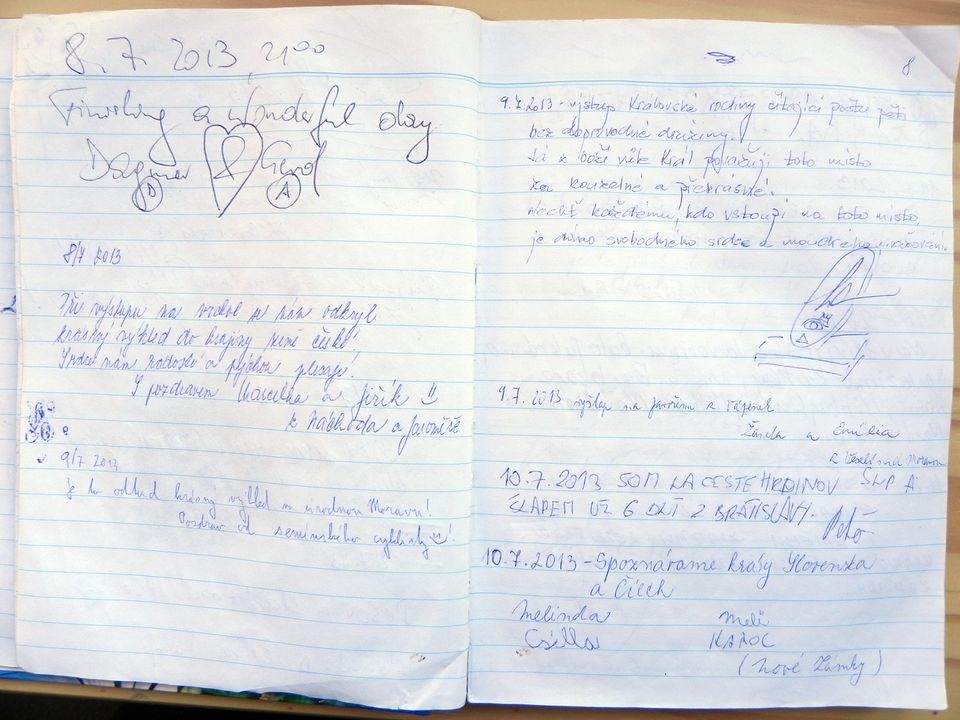 8. 7. 2013, 21⁰⁰
Finishing a wonderful day
Dagmar & Gerd
D A
8/7 2013
Při výstupu na vrchol se nám odkryl
krásný výhled do krajiny země české
Srdce nám radostí a pýchou plesají!
S pozdravem Marcelka a Jiřík
z Náchoda a Jaroměře
9/7 2013
Je to odtud krásný výhled na úrodnou Moravu!
Pozdrav od semínského cyklisty!
8
9.7.2013 - výstup Královské rodiny čítající počtu pěti
bez doprovodné družiny.
Já z boží vůle Král považuji toto místo
za kouzelné a překrásné.
Nechť každému, kdo vstoupí na toto místo,
je dáno svobodného srdce a moudrého uvažování
9.7. 2013 výšlap na Javořinu z Vápenek
Žaneta a Emília
z Veselí nad Moravou
10.7.2013 SOM NA CESTE HRDINOV SNP A
ŠLAPEM UŽ 6 DNÍ Z BRATISLAVY.
Peťo
10.7.2013 - Spoznávame krásy Slovenska
a Čiech
Melinda Meli
Csilla KAROL
(Nové Zámky)